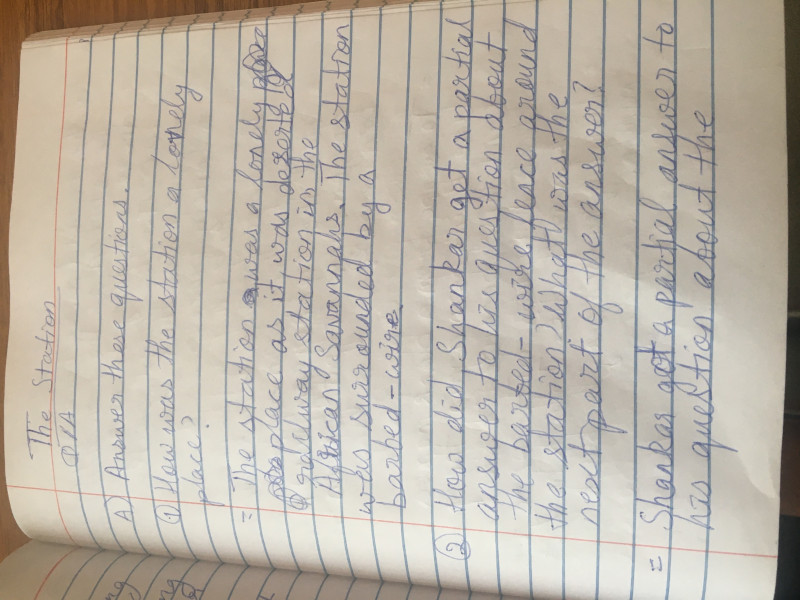 The Station
Q/A
A) Answer these questions.
① How was the station a lonely
place?
= The station was a lonely
place as it was deserted
railway station in the
African Savannahs. The station
was surrounded by a
barbed-wire.
② How did Shankar get a partial
answer to his question about
the barbed-wire fence around
the station? What was the
next part of the answer?
= Shankar got a partial answer to
his question about the